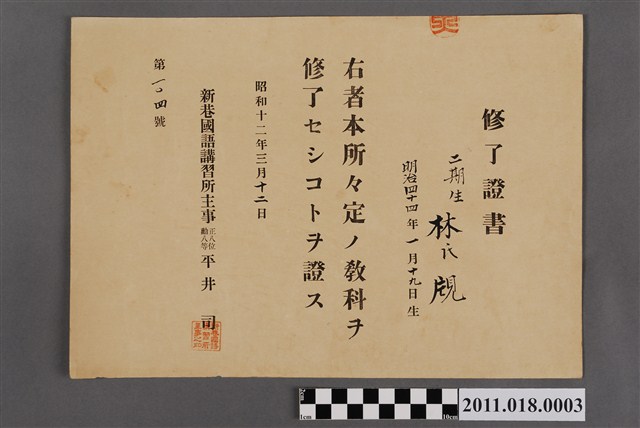 修了證書
二期生 林氏
明治四十四年一月十九日生
右者本所々定ノ教科ヲ
修了セシコトヲ證ス
昭和十二年三月十二日
新巷國語講習所主事 正八位勳八等 平井 司
第一〇四號
1cm
10cm
2011.018.0003